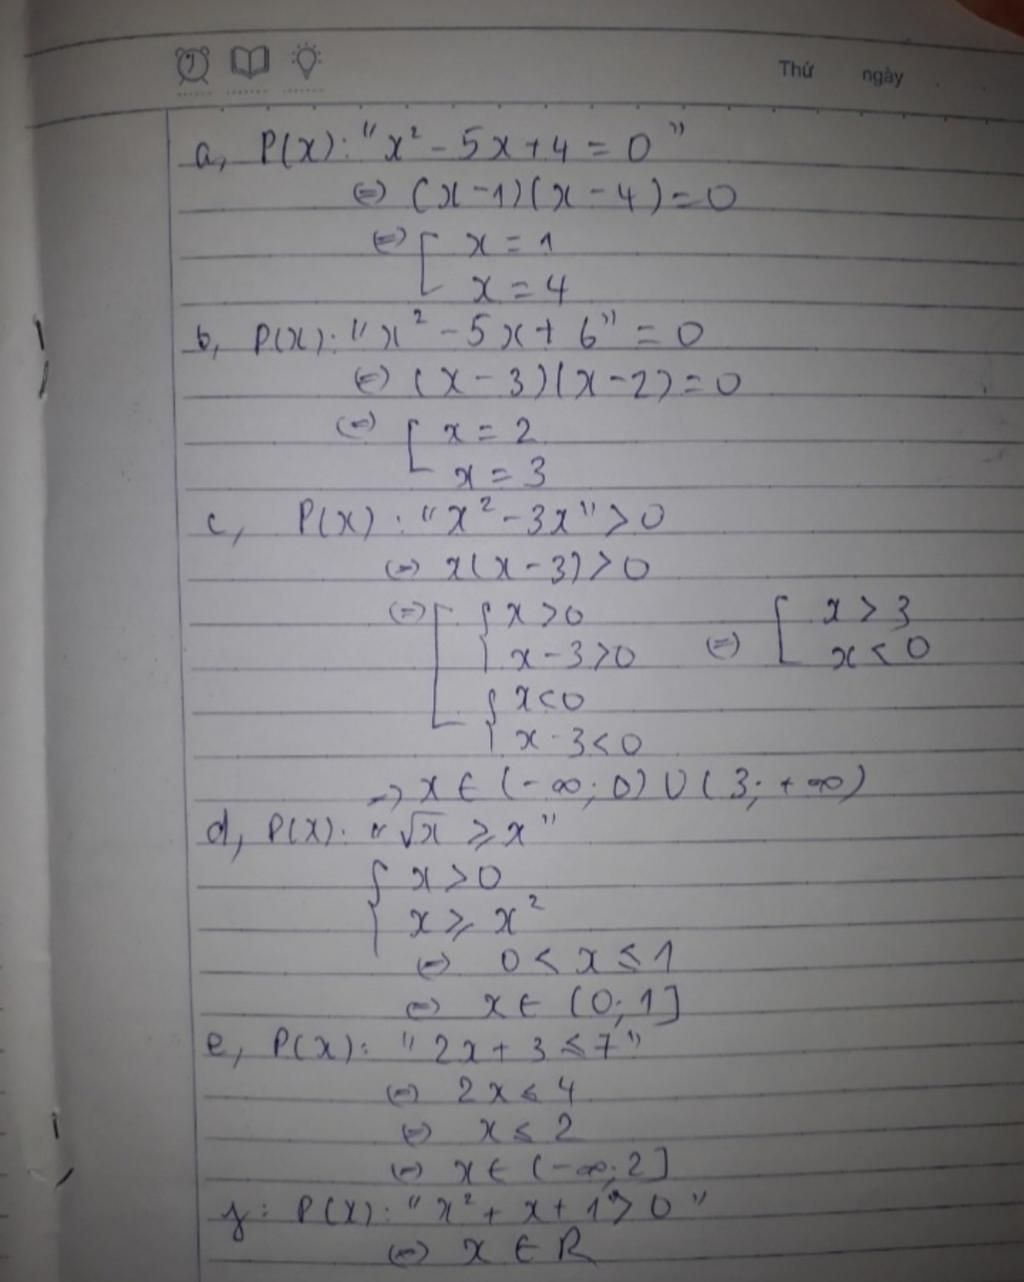 Thứ ngày
a, P(x): "x² - 5x + 4 = 0"
(=) (x - 1)(x - 4) = 0
(=) [ x = 1
x = 4
b, P(x): "x² - 5x + 6" = 0
(=) (x - 3)(x - 2) = 0
(=) [ x = 2
x = 3
c, P(x): "x² - 3x" > 0
(=) x(x - 3) > 0
(=) [ { x > 0 [ x > 3
x - 3 > 0 (=) x < 0
{ x < 0
x - 3 < 0
=> x ∈ (-∞; 0) U (3; +∞)
d, P(x): "√x ≥ x"
{ x > 0
x ≥ x²
(=) 0 < x ≤ 1
(=) x ∈ (0; 1]
e, P(x): "2x + 3 ≤ 7"
(=) 2x ≤ 4
(=) x ≤ 2
(=) x ∈ (-∞; 2]
f: P(x): "x² + x + 1 > 0"
(=) x ∈ R